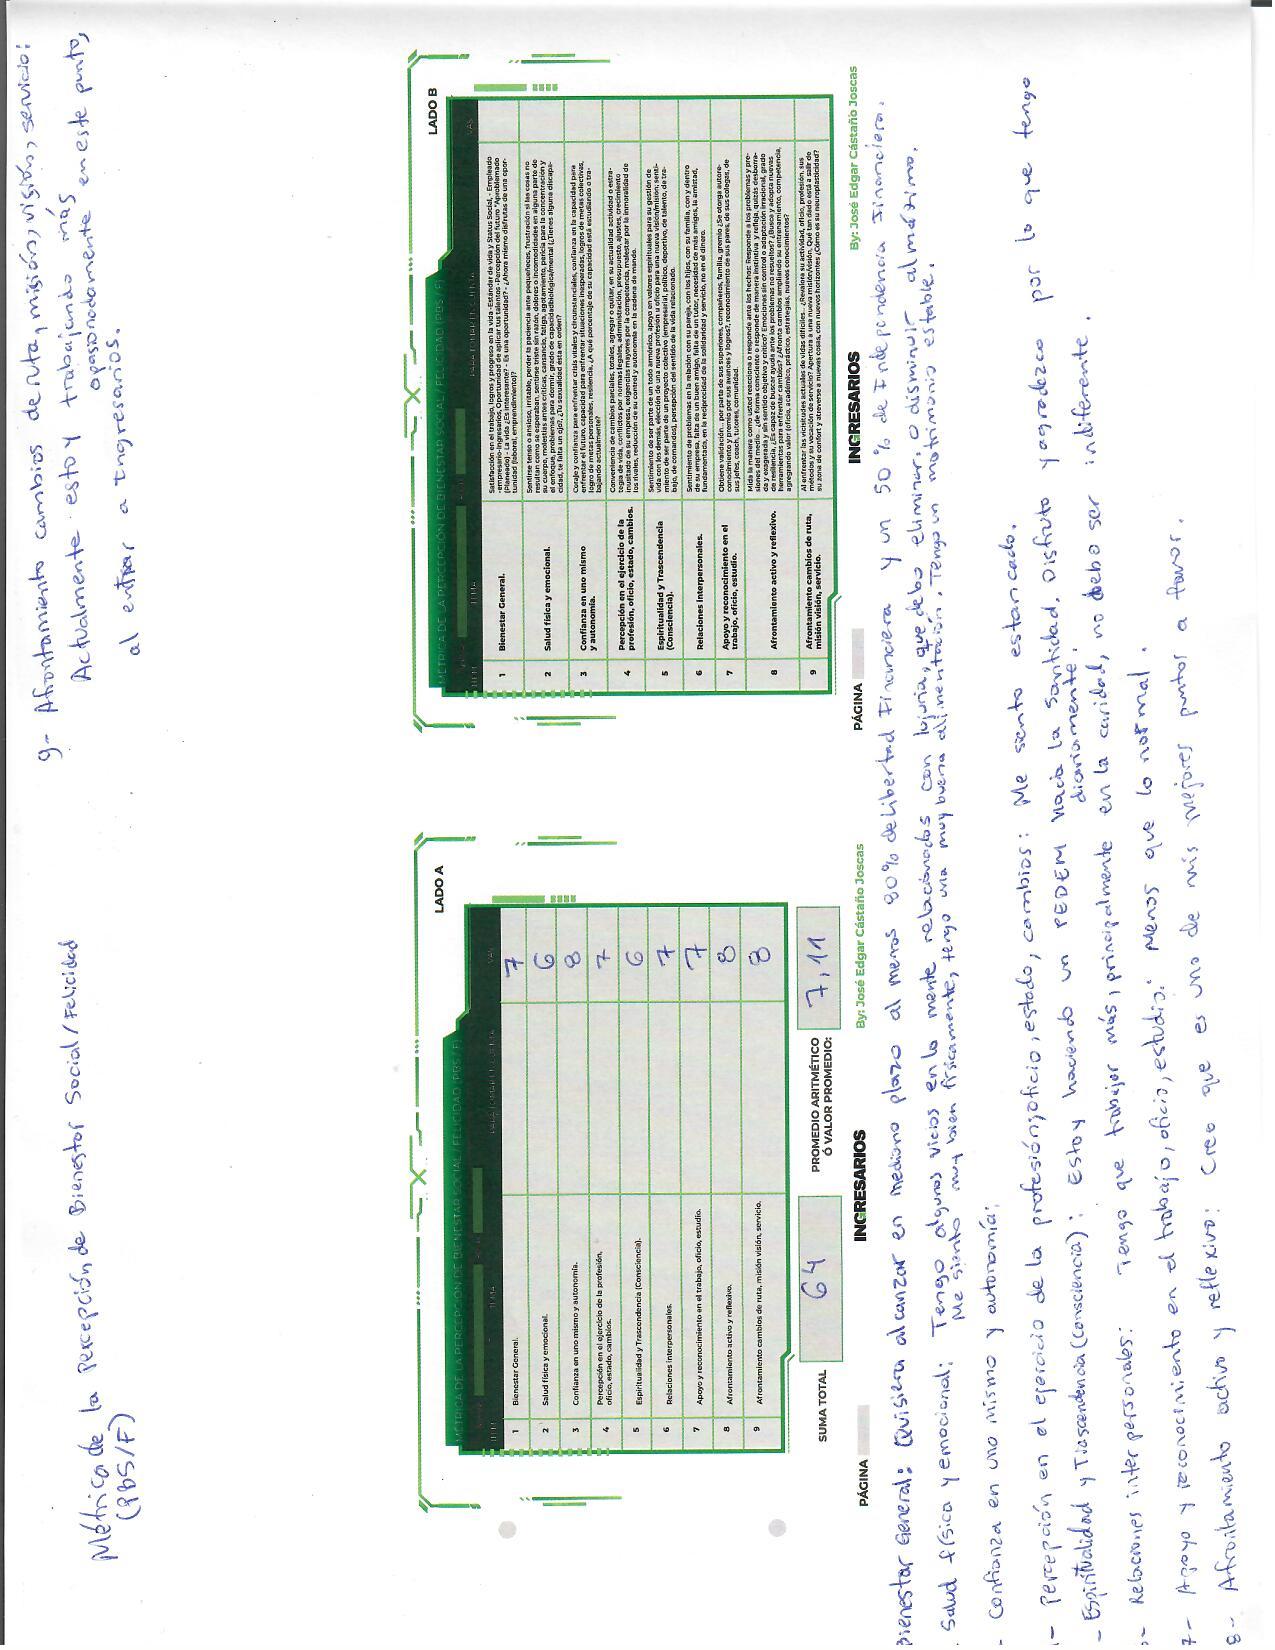 Métrica de la Percepción de Bienestar Social/Felicidad
(PBS/F)
9- Afrontamiento cambios de ruta, misión, visión, servicio:
Actualmente estoy trabajando más
apasionadamente en este punto,
al entrar a Ingresarios.
LADO A
MÉTRICA DE LA PERCEPCIÓN DE BIENESTAR SOCIAL / FELICIDAD (PBS / F)
ITEM TEMA PARA TOMAR EN CUENTA VAS
1 Bienestar General. 7
2 Salud física y emocional. 6
3 Confianza en uno mismo y autonomía. 8
4 Percepción en el ejercicio de la profesión,
oficio, estado, cambios. 7
5 Espiritualidad y Trascendencia (Consciencia). 6
6 Relaciones interpersonales. 7
7 Apoyo y reconocimiento en el trabajo, oficio, estudio. 7
8 Afrontamiento activo y reflexivo. 8
9 Afrontamiento cambios de ruta, misión visión, servicio. 8
SUMA TOTAL 64 PROMEDIO ARITMÉTICO
Ó VALOR PROMEDIO: 7,11
PÁGINA INGRESARIOS By: José Edgar Cástaño Joscas
LADO B
MÉTRICA DE LA PERCEPCIÓN DE BIENESTAR SOCIAL / FELICIDAD (PBS / F)
ITEM TEMA PARA TOMAR EN CUENTA VAS
1 Bienestar General.
Satisfacción en el trabajo, logros y progreso en la vida -Estándar de vida y Status Social, - Empleado
-empresario-Ingresarios, Oportunidad de aplicar tus talentos -Percepción del futuro "Aproblemado
(Planeado) - La vida ¿Es interesante? - Es una oportunidad? - ¿Ahora mismo disfrutas de una opor-
tunidad (laboral, emprendimiento)?
2 Salud física y emocional.
Sentirse tenso o ansioso, irritable, perder la paciencia ante pequeñeces, frustración si las cosas no
resultan como se esperaban, sentirse triste sin razón, dolores o incomodidades en alguna parte de
su cuerpo, molestias antes críticas, cansancio, fatiga, agotamiento, pericia para la concentración y
el enfoque, problemas para dormir, grado de capacidadbiológica/mental (¿Tienes alguna discapa-
cidad, te falta un ojo?, ¿Tu sexualidad ésta en orden?
3 Confianza en uno mismo
y autonomía.
Coraje y confianza para enfrentar crisis vitales y circunstanciales, confianza en la capacidad para
enfrentar el futuro, capacidad para enfrentar situaciones inesperadas, logros de metas colectivas,
logro de metas personales, resilencia, ¿A qué porcentaje de su capacidad está estudiando o tra-
bajando actualmente?
4 Percepción en el ejercicio de la
profesión, oficio, estado, cambios.
Conveniencia de cambios parciales, totales, agregar o quitar, en su actualidad actividad o estra-
tegia de vida, conflictos por normas legales, administración, presupuesto, ajustes, crecimiento
inusitado de su empresa, exigencias mayores por la competencia, malestar por la inmoralidad de
los rivales, reducción de su control y autonomía en la cadena de mando.
5 Espiritualidad y Trascendencia
(Consciencia).
Sentimiento de ser parte de un todo armónico, apoyo en valores espirituales para su gestión de
vida con los demás, elección de una nueva profesión u oficio para una nueva visión/misión; senti-
miento de ser parte de un proyecto colectivo (empresarial, político, deportivo, de talento, de tra-
bajo, de comandos), percepción del sentido de la vida relacionado.
6 Relaciones Interpersonales.
Sentimiento de problemas en la relación con su pareja, con los hijos, con su familia, con y dentro
de su empresa, falta de un buen amigo, falta de un tutor, necesidad de más amigos, la amistad,
fundamentada, en la reciprocidad de la solidaridad y servicio, no en el dinero.
7 Apoyo y reconocimiento en el
trabajo, oficio, estudio.
Obtiene validación... por parte de sus superiores, compañeros, familia, gremio ¿Se otorga autore-
conocimiento y premio por sus avances y logros?, reconocimiento de sus pares, de sus colegas, de
sus jefes, coach, tutores, comunidad.
8 Afrontamiento activo y reflexivo.
Mida la manera como usted reacciona o responde ante los hechos: Responde a los problemas y pre-
siones del medio... ¿de forma consciente o responde de manera instintiva y refleja, quizás desborra-
da y exagerada y sin sentido objetivo y crítico? Emociones sin control o adaptación irracional, grado
de resilencia, ¿Es capaz de buscar ayuda ante los problemas no resueltos? ¿Busca y adopta nuevas
herramientas para enfrentar cambios? ¿Afronta cambios ampliando su entrenamiento, competencia,
agregrando valor (oficio, académico, práctico, estrategias, nuevos conocimientos?
9 Afrontamiento cambios de ruta,
misión visión, servicio.
Al enfrentar las vicisitudes actuales de vidas difíciles... ¿Revalora su actividad, oficio, profesión, sus
métodos y su vocación de servicio? Apertura a una nueva misión/visión, Qué tan dado está a salir de
su zona de confort y atreverse a nuevas cosas, con nuevos horizontes ¿Cómo es su neuroplasticidad?
PÁGINA INGRESARIOS By: José Edgar Cástaño Joscas
Bienestar General: Quisiera alcanzar en mediano plazo al menos 80% de Libertad Financiera y un 50% de Independencia Financiera.
. Salud física y emocional: Tengo algunos vicios en la mente relacionados con lujuria, que debo eliminar. o disminuir al máximo.
Me siento muy bien físicamente, tengo una muy buena alimentación. Tengo un matrimonio estable.
- Confianza en uno mismo y autonomía:
- Percepción en el ejercicio de la profesión, oficio, estado, cambios: Me siento estancado.
- Espiritualidad y Trascendencia (Consciencia): Estoy haciendo un PEDEM hacia la Santidad. Disfruto y agradezco por lo que tengo
diariamente.
- Relaciones interpersonales: Tengo que trabajar más, principalmente en la caridad, no debo ser indiferente.
7- Apoyo y reconocimiento en el trabajo, oficio, estudio: Menos que lo normal.
8- Afrontamiento activo y reflexivo: Creo que es uno de mis mejores puntos a favor.